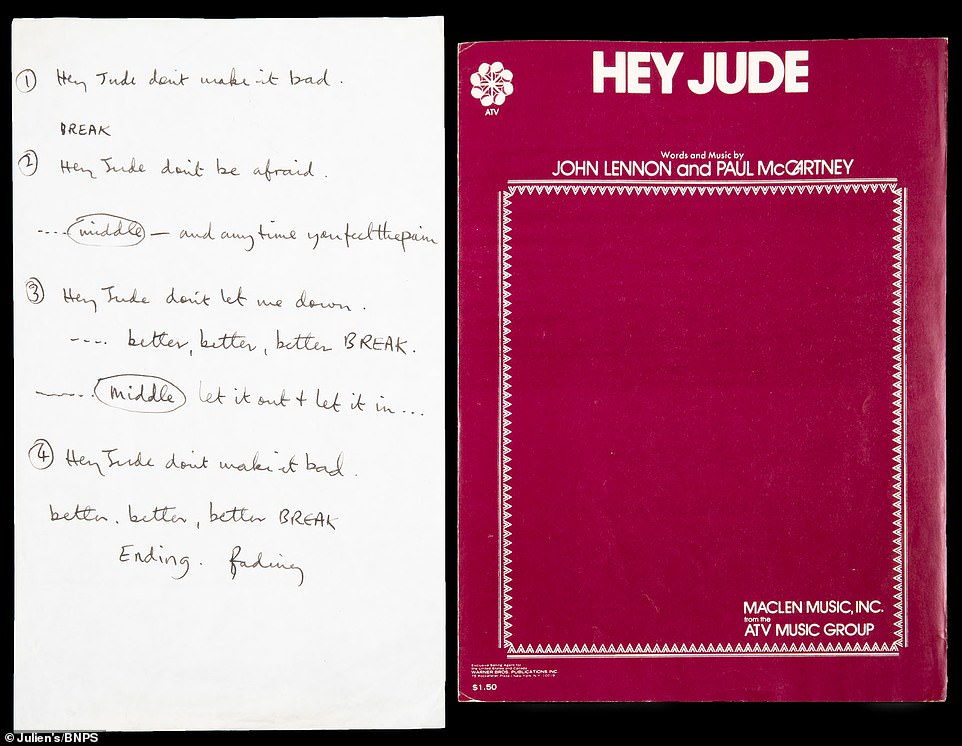 ① Hey Jude don't make it bad.
BREAK
② Hey Jude don't be afraid.
---- middle — and anytime you feel the pain
③ Hey Jude don't let me down.
---- better, better, better BREAK.
------- middle let it out + let it in ...
④ Hey Jude don't make it bad.
better. better, better BREAK
Ending. fading
ATV
HEY JUDE
Words and Music by
JOHN LENNON and PAUL McCARTNEY
MACLEN MUSIC, INC.
from the
ATV MUSIC GROUP
Exclusive Selling Agent for
the United States and Canada
WARNER BROS. PUBLICATIONS INC.
75 Rockefeller Plaza / New York N.Y. 10019
$1.50
© Julien's/BNPS